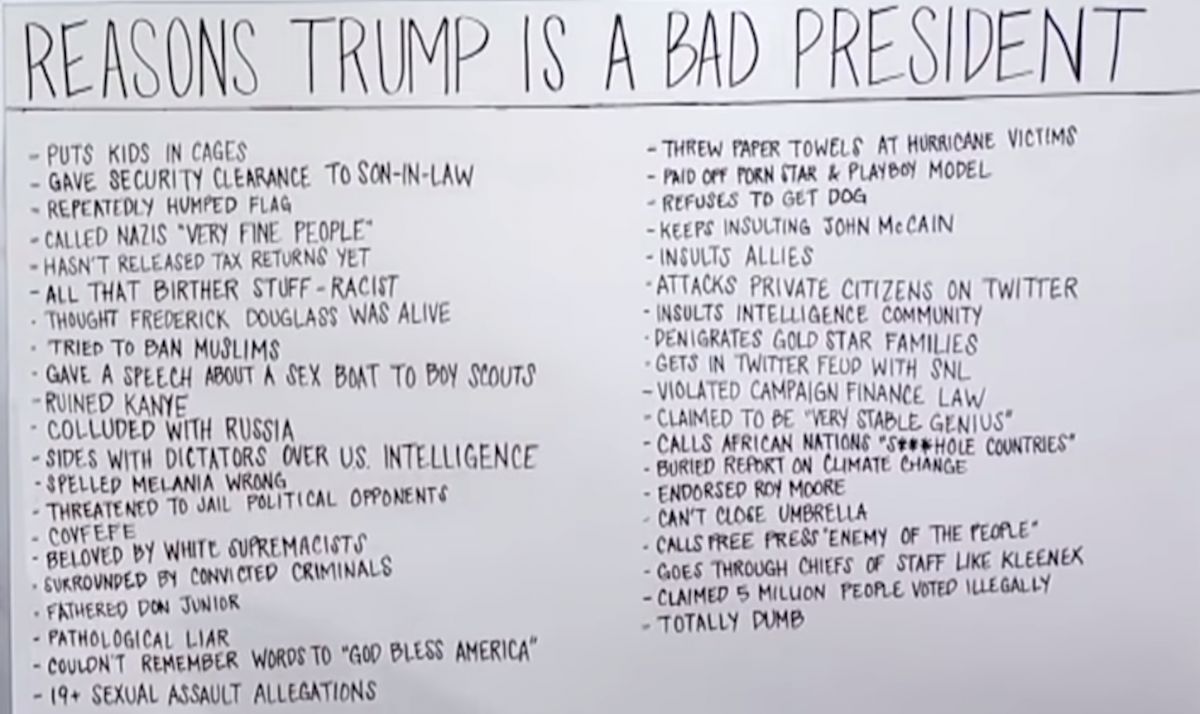 REASONS TRUMP IS A BAD PRESIDENT
- PUTS KIDS IN CAGES
- GAVE SECURITY CLEARANCE TO SON-IN-LAW
- REPEATEDLY HUMPED FLAG
- CALLED NAZIS "VERY FINE PEOPLE"
- HASN'T RELEASED TAX RETURNS YET
- ALL THAT BIRTHER STUFF - RACIST
- THOUGHT FREDERICK DOUGLASS WAS ALIVE
- TRIED TO BAN MUSLIMS
- GAVE A SPEECH ABOUT A SEX BOAT TO BOY SCOUTS
- RUINED KANYE
- COLLUDED WITH RUSSIA
- SIDES WITH DICTATORS OVER U.S. INTELLIGENCE
- SPELLED MELANIA WRONG
- THREATENED TO JAIL POLITICAL OPPONENTS
- COVFEFE
- BELOVED BY WHITE SUPREMACISTS
- SURROUNDED BY CONVICTED CRIMINALS
- FATHERED DON JUNIOR
- PATHOLOGICAL LIAR
- COULDN'T REMEMBER WORDS TO "GOD BLESS AMERICA"
- 19+ SEXUAL ASSAULT ALLEGATIONS
- THREW PAPER TOWELS AT HURRICANE VICTIMS
- PAID OFF PORN STAR & PLAYBOY MODEL
- REFUSES TO GET DOG
- KEEPS INSULTING JOHN McCAIN
- INSULTS ALLIES
- ATTACKS PRIVATE CITIZENS ON TWITTER
- INSULTS INTELLIGENCE COMMUNITY
- DENIGRATES GOLD STAR FAMILIES
- GETS IN TWITTER FEUD WITH SNL
- VIOLATED CAMPAIGN FINANCE LAW
- CLAIMED TO BE "VERY STABLE GENIUS"
- CALLS AFRICAN NATIONS "S***HOLE COUNTRIES"
- BURIED REPORT ON CLIMATE CHANGE
- ENDORSED ROY MOORE
- CAN'T CLOSE UMBRELLA
- CALLS FREE PRESS "ENEMY OF THE PEOPLE"
- GOES THROUGH CHIEFS OF STAFF LIKE KLEENEX
- CLAIMED 5 MILLION PEOPLE VOTED ILLEGALLY
- TOTALLY DUMB